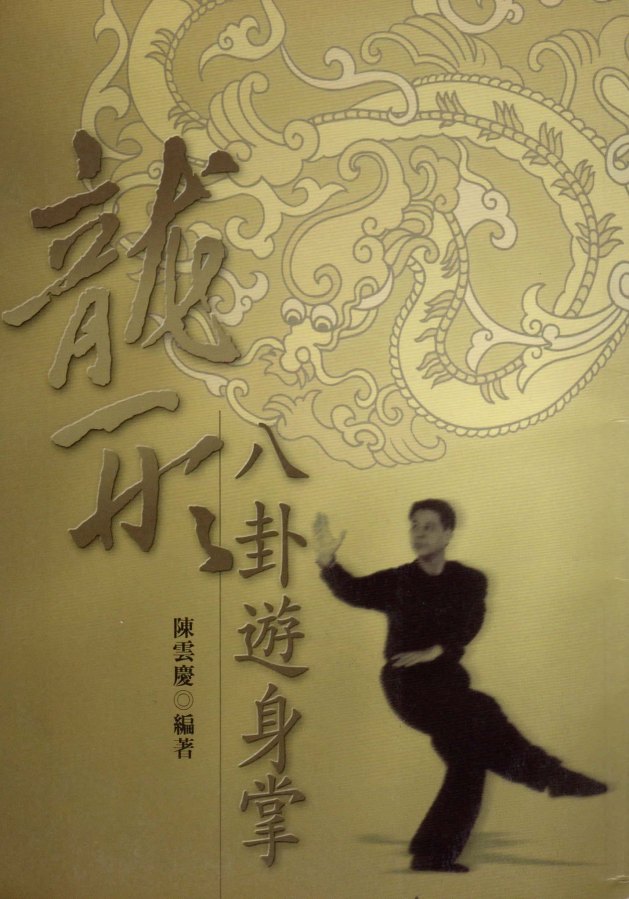 龍形
八卦遊身掌
陳雲慶◎編著